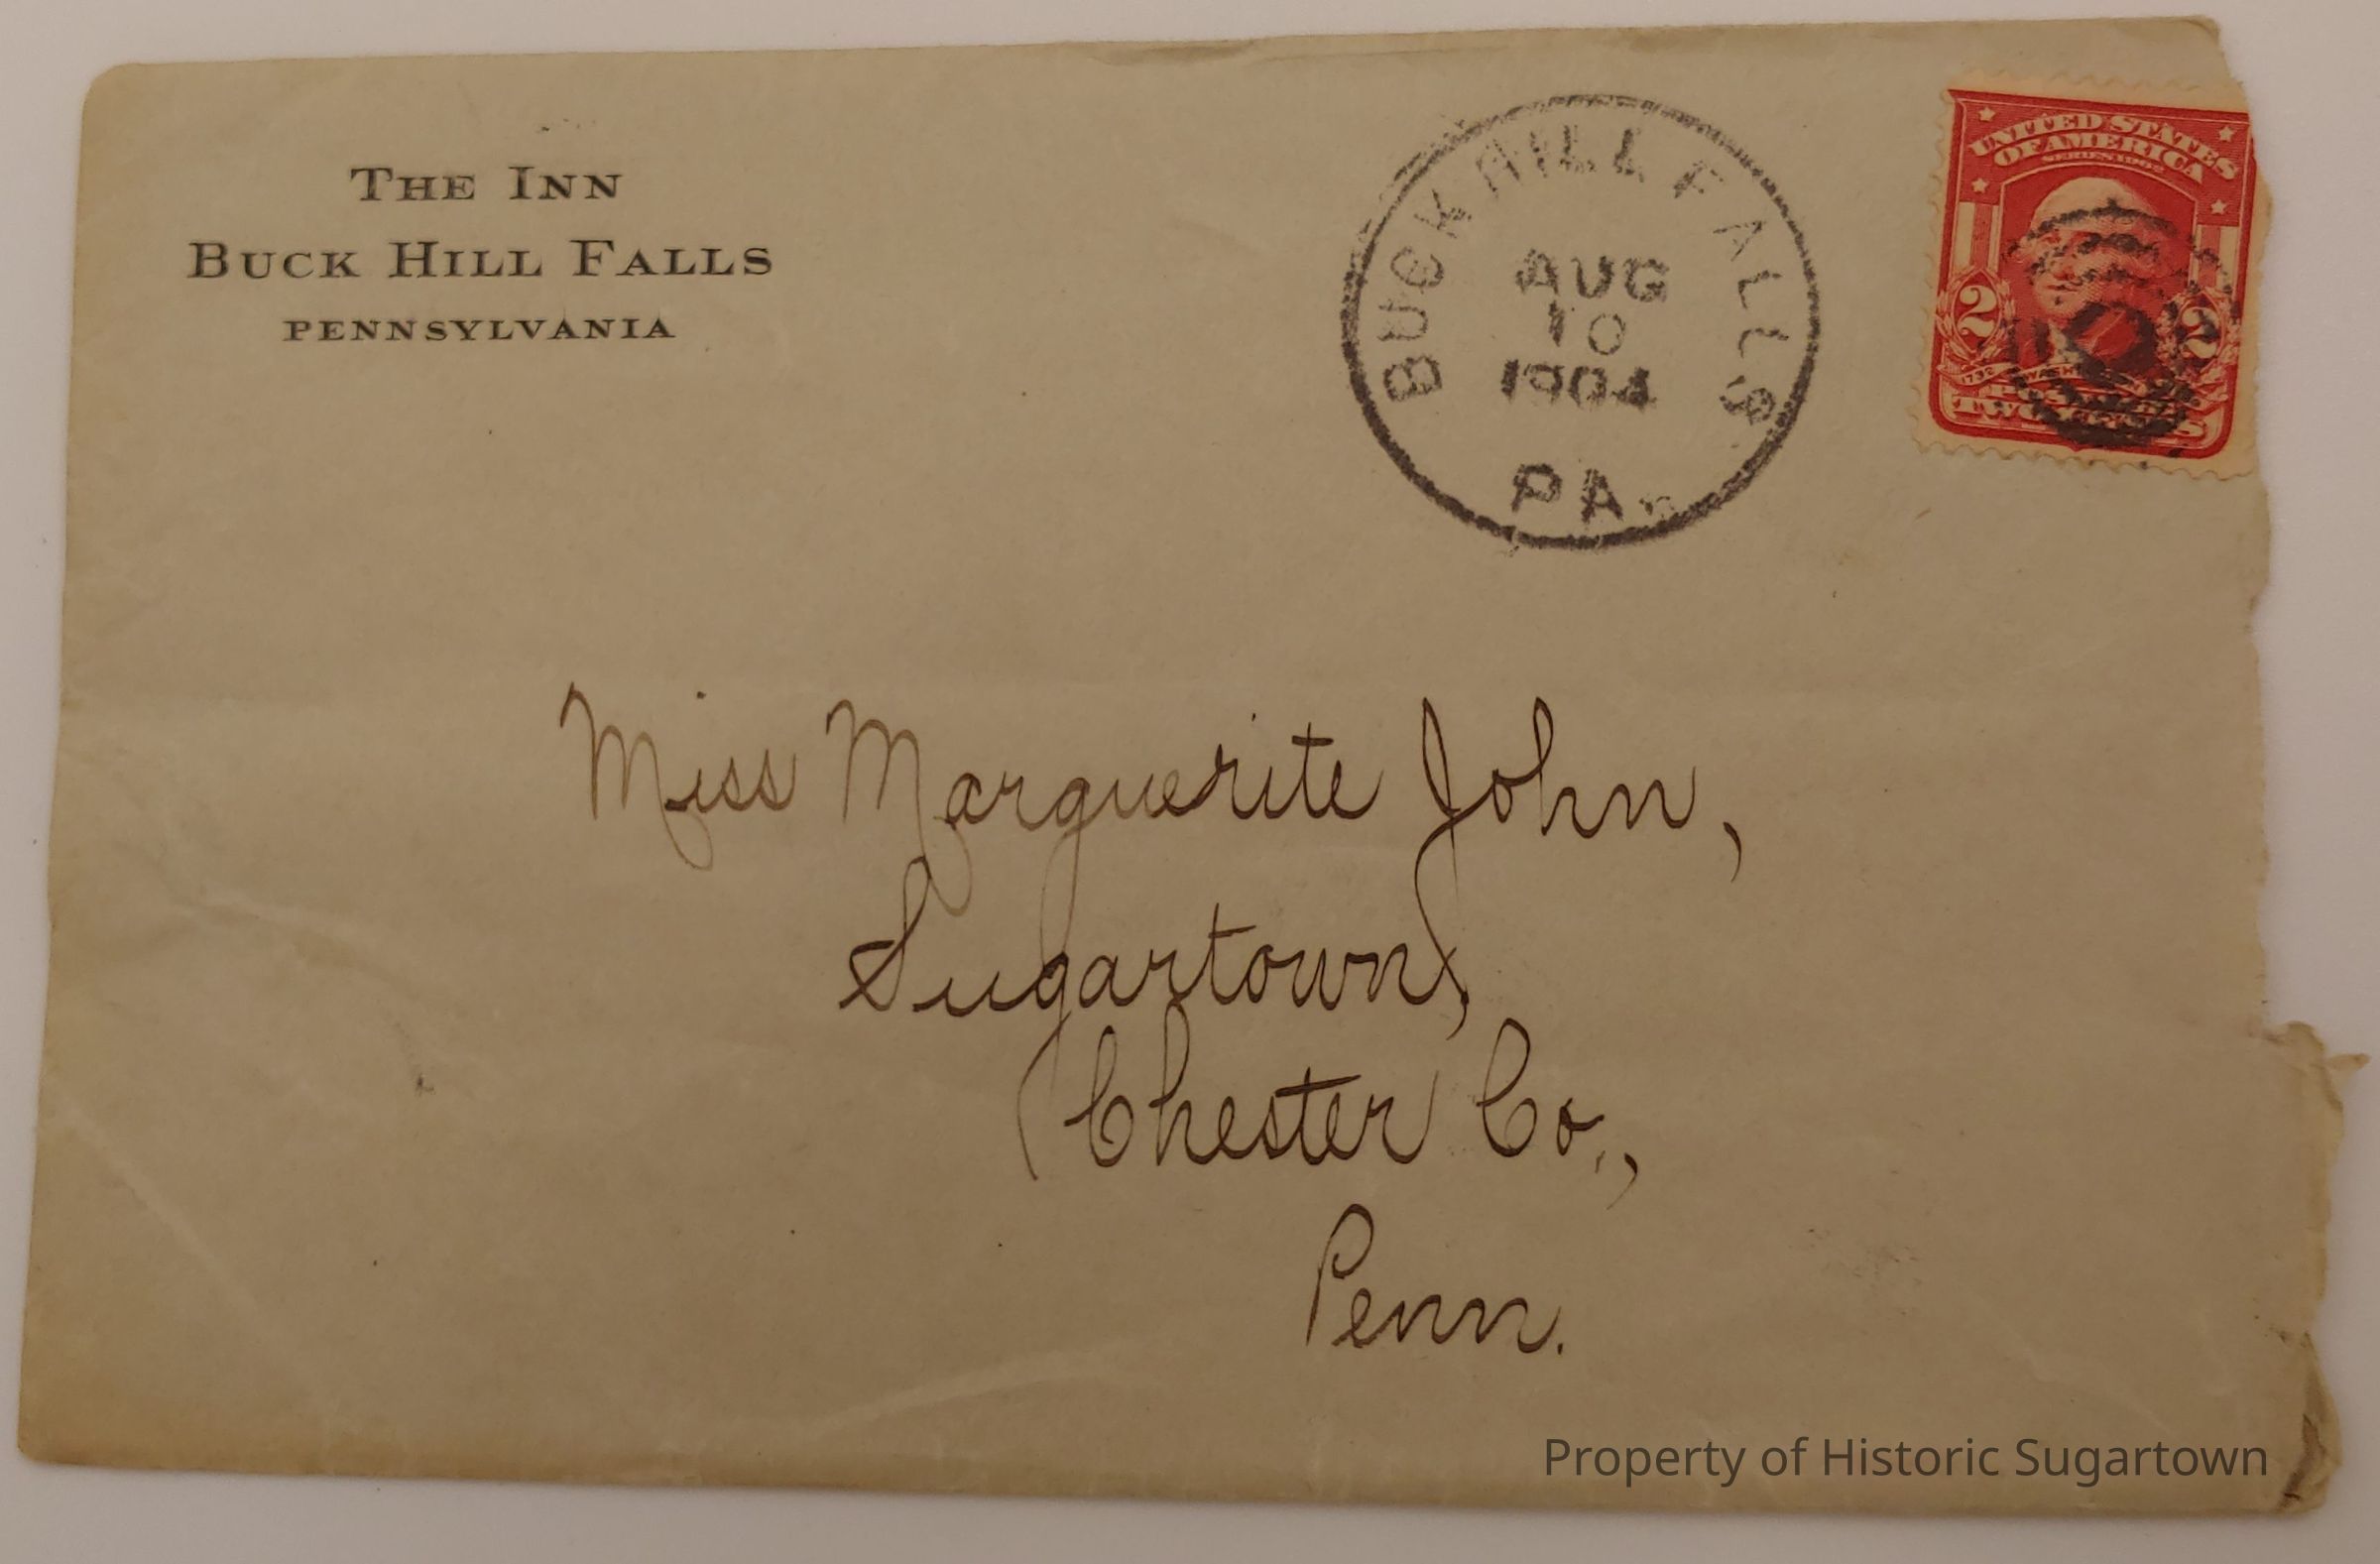 The Inn
Buck Hill Falls
Pennsylvania
BUCK HILL FALLS
AUG
10
1904
PA.
UNITED STATES
OF AMERICA
SERIES 1902
2 2
POSTAGE
TWO CENTS
Miss Marguerite John,
Sugartown,
Chester Co.,
Penn.
Property of Historic Sugartown